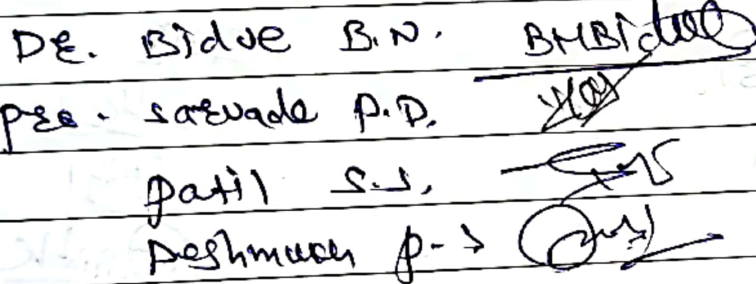 Dr. Bidve B.N. BNBidve
Pro. Sarvade P.D.
Patil S.S.
Deshmukh P.S